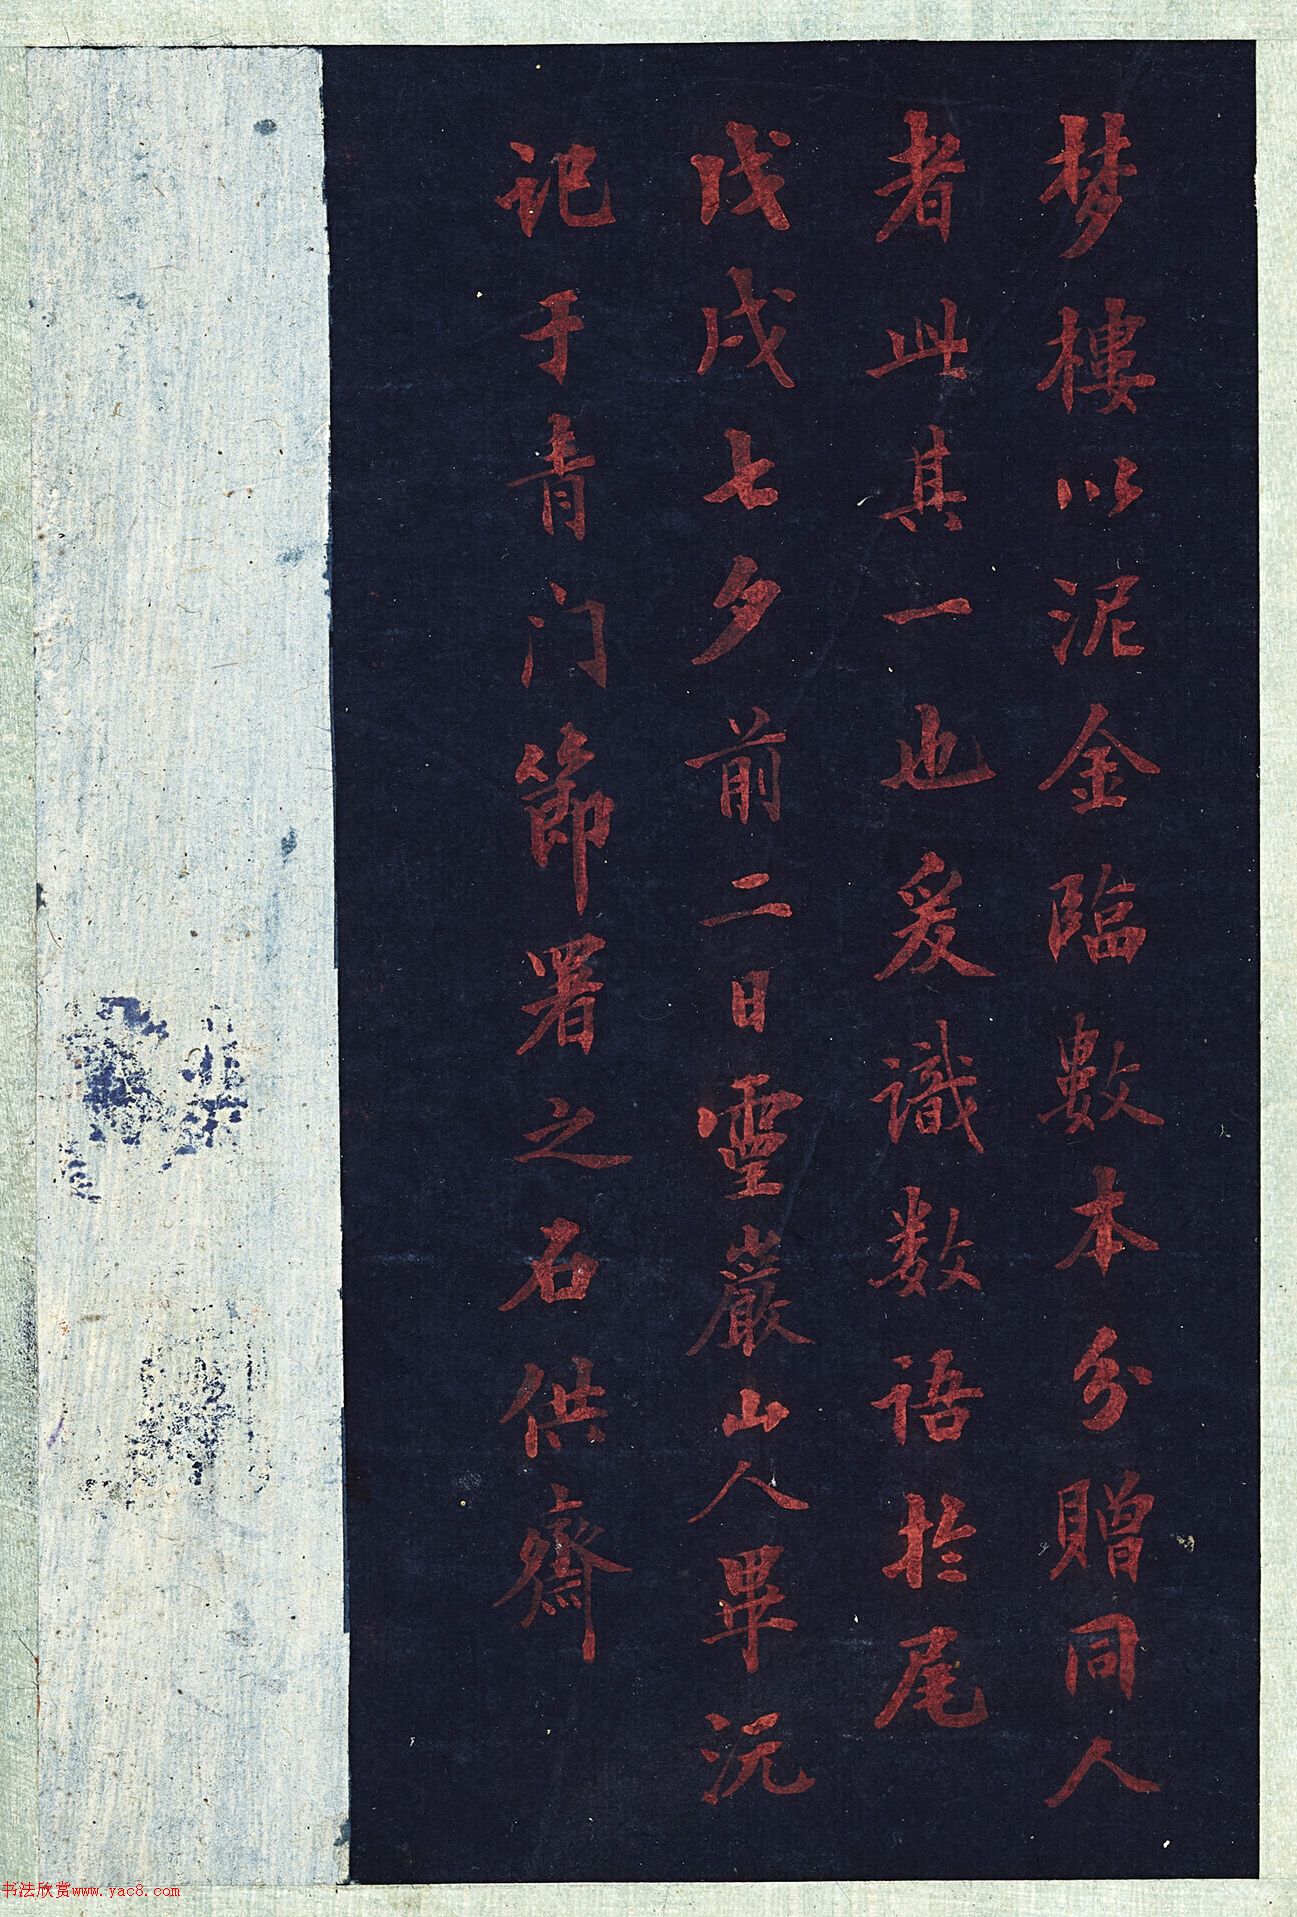 梦樓以泥金臨數本分贈同人
者此其一也爰識数語於尾
戊戌七夕前二日靈巖山人畢沅
记于青门節署之石供齋
书法欣赏www.yac8.com